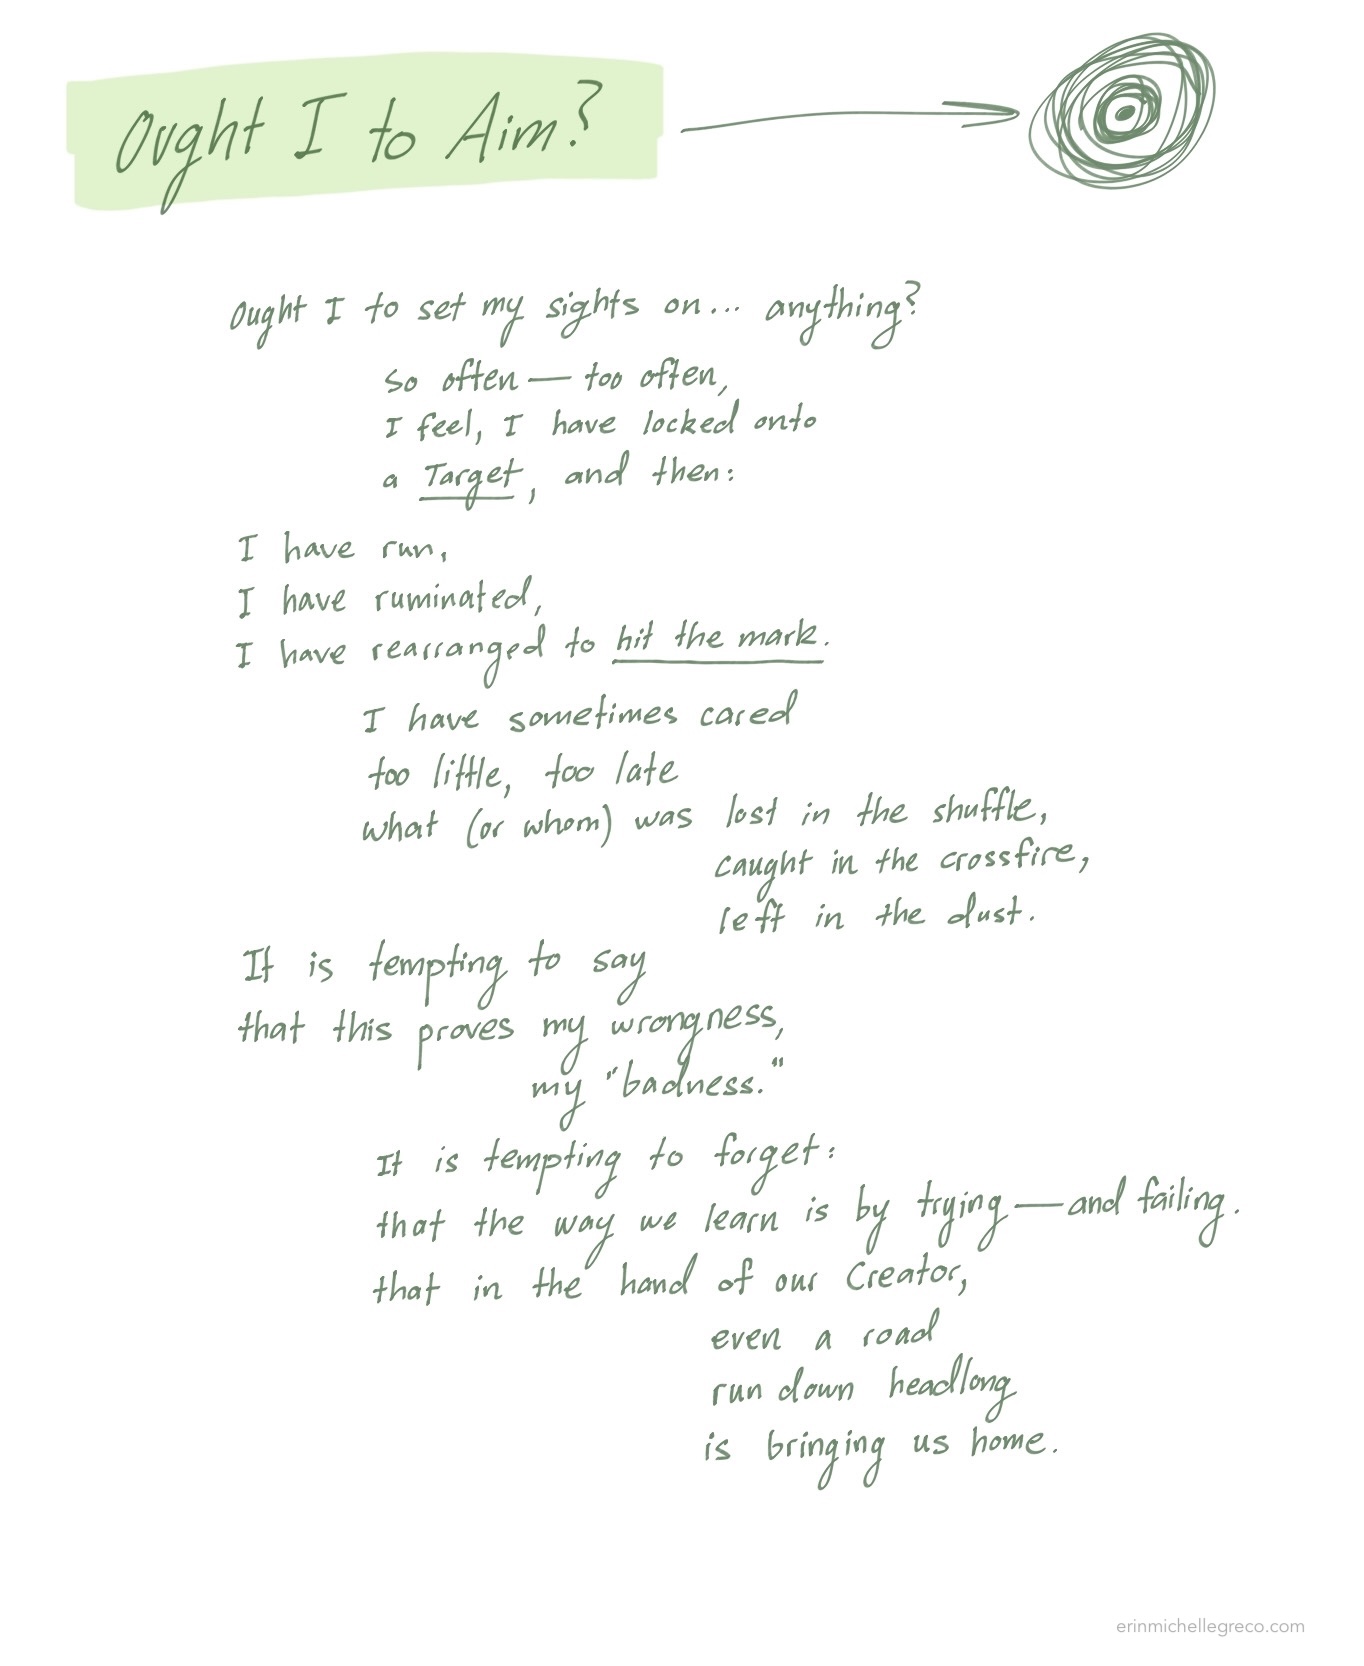 Ought I to Aim?
Ought I to set my sights on... anything?
So often — too often,
I feel, I have locked onto
a Target, and then:
I have run,
I have ruminated,
I have rearranged to hit the mark.
I have sometimes cared
too little, too late
what (or whom) was lost in the shuffle,
caught in the crossfire,
left in the dust.
It is tempting to say
that this proves my wrongness,
my "badness."
It is tempting to forget:
that the way we learn is by trying — and failing.
that in the hand of our Creator,
even a road
run down headlong
is bringing us home.
erinmichellegreco.com